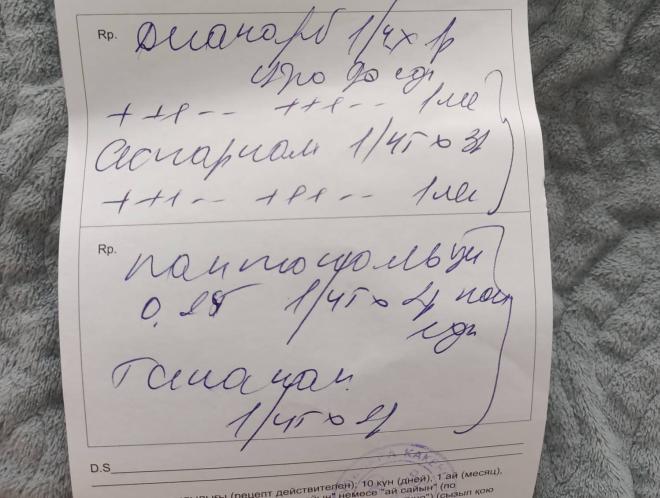 Rp. Диакарб 1/4 х 1р
утро до еды
+++-- +++-- 1 мес
Аспаркам 1/4т х 3р
+++-- +++-- 1 мес
Rp. пантокальцин
0,25 1/4т х 2р после
еды
Танакан
1/4т х 2р
D.S
(рецепт действителен), 10 күн (дней), 1 ай (месяц),
немесе "ай сайын" (по
(сызып қою